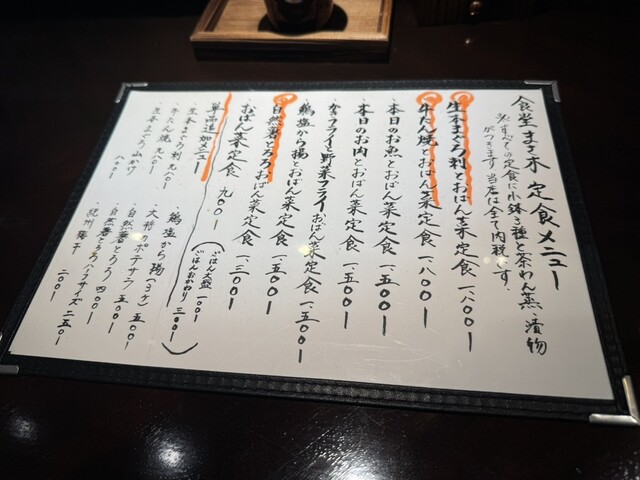 食堂まる木 定食メニュー
※すべての定食に小鉢3種と茶わん蒸・漬物
がつきます 当店は全て内税です。
生本まぐろ刺とおばん菜定食 一、八〇〇ー
牛たん焼とおばん菜定食 一、八〇〇ー
本日のお魚とおばん菜定食 一、五〇〇ー
本日のお肉とおばん菜定食 一、五〇〇ー
かきフライと野菜フライおばん菜定食 一、五〇〇ー
鶏塩から揚とおばん菜定食 一、五〇〇ー
自然薯とろろおばん菜定食 一、三〇〇ー
おばん菜定食 九〇〇ー
(ごはん大盛 一〇〇ー
ごはんおかわり 三〇〇ー)
単品追加メニュー
生本まぐろ刺 九八〇ー
牛たん焼 九八〇ー
生本まぐろ山かけ 八〇〇ー
鶏塩から揚(3ケ)
大将のポテサラ 五〇〇ー
自然薯とろろ 四〇〇ー
自然薯とろろハーフサイズ 二五〇ー
紀州梅干 二〇〇ー